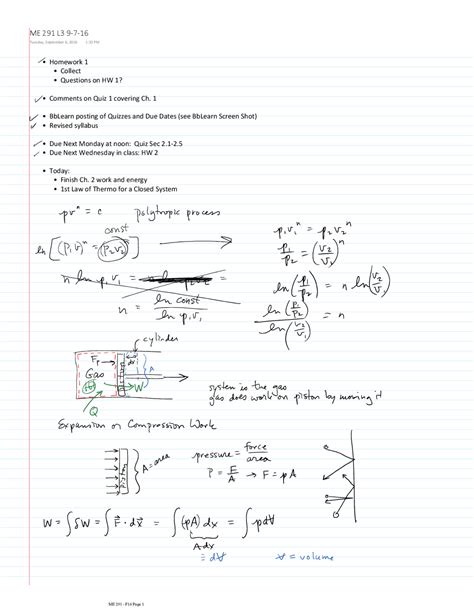 ME 291 L3 9-7-16
Tuesday, September 6, 2016    1:30 PM
✓• Homework 1
• Collect
• Questions on HW 1?
✓• Comments on Quiz 1 covering Ch. 1
✓• BbLearn posting of Quizzes and Due Dates (see BbLearn Screen Shot)
✓• Revised syllabus
✓• Due Next Monday at noon: Quiz Sec 2.1-2.5
✓• Due Next Wednesday in class: HW 2
• Today:
• Finish Ch. 2 work and energy
• 1st Law of Thermo for a Closed System
pvⁿ = c    polytropic process
const
ln[(p₁v₁)ⁿ = (p₂v₂)ⁿ]
n ln p₁v₁ =
n = ln const / ln p₁v₁
p₁v₁ⁿ = p₂v₂ⁿ
p₁/p₂ = (v₂/v₁)ⁿ
ln(p₁/p₂) = n ln(v₂/v₁)
ln(p₁/p₂) / ln(v₂/v₁) = n
cylinder
F_p    dx    A
Gas
W
Q
system is the gas
gas does work on piston by moving it
Expansion or Compression Work
piston
A = area
pressure = force / area
P = F/A → F = pA
W = ∫δW = ∫F⃗·dx⃗ = ∫(pA)dx = ∫pdV
Adx
= dV    V = volume
ME 291 - F16 Page 1